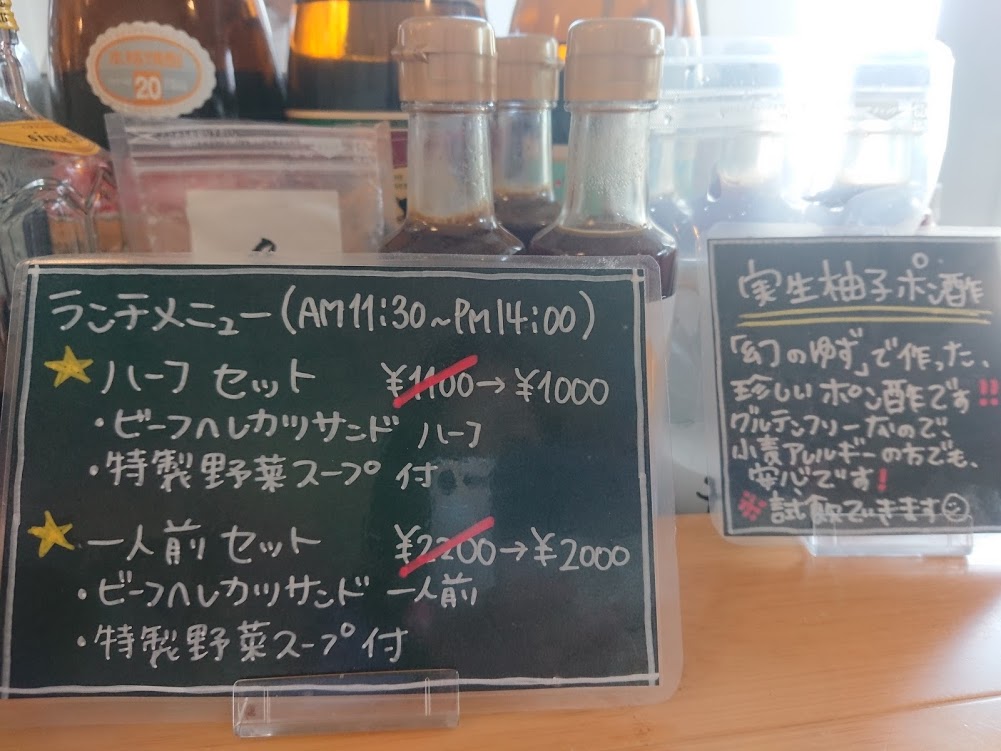 ランチメニュー(AM11:30~PM14:00)
ハーフ セット ¥1100→¥1000
・ビーフヘレカツサンド ハーフ
・特製野菜スープ付
一人前 セット ¥2200→¥2000
・ビーフヘレカツサンド 一人前
・特製野菜スープ付
実生柚子ポン酢
「幻のゆず」で作った、
珍しいポン酢です!!
グルテンフリーなので、
小麦アレルギーの方でも、
安心です!
※試飲できます
20